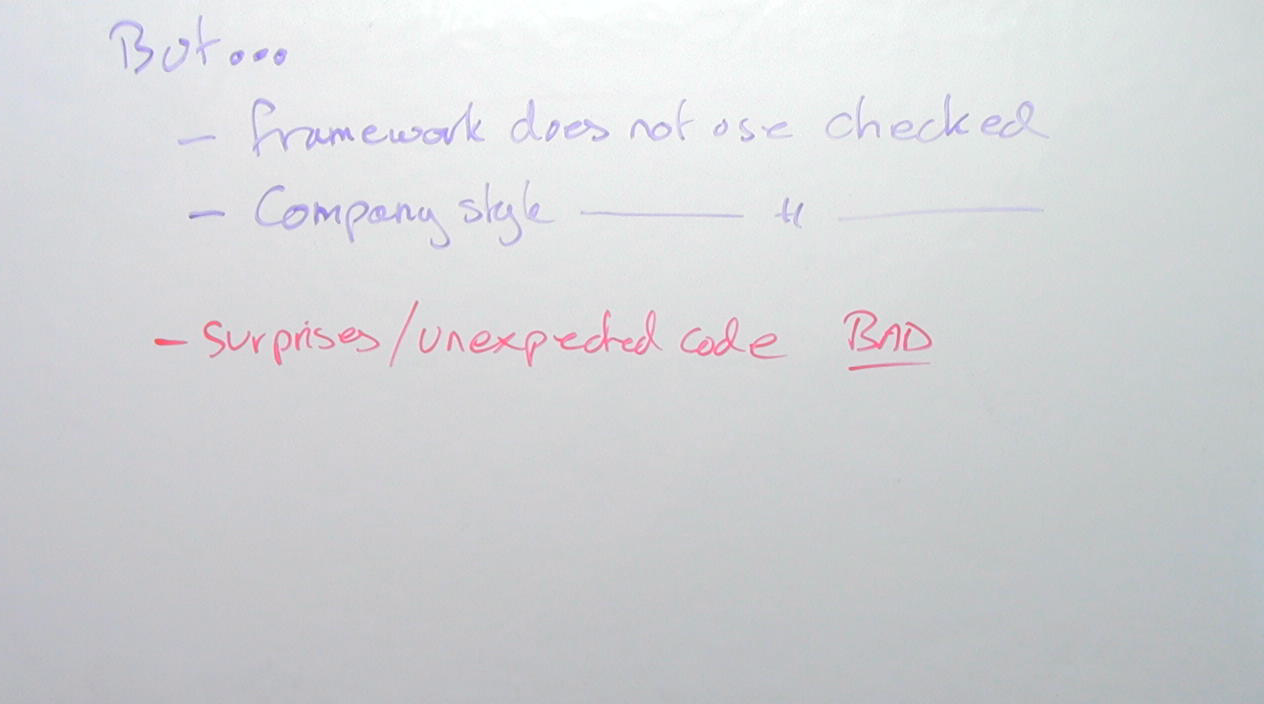 But...
- framework does not use checked
- Company style —— " ——
- surprises/unexpected code BAD